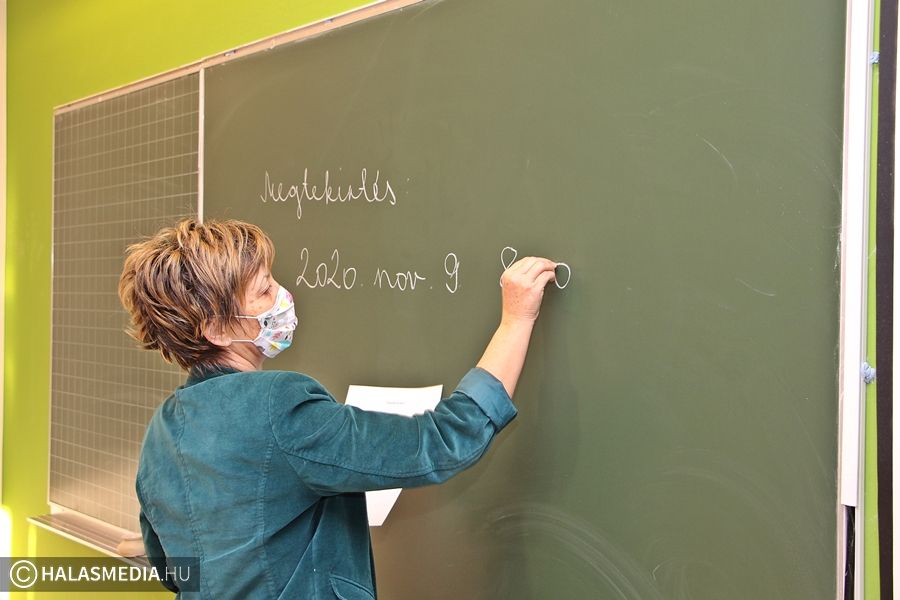 Megtekintés:
2020. nov. 9. 8
© HALASMEDIA.HU